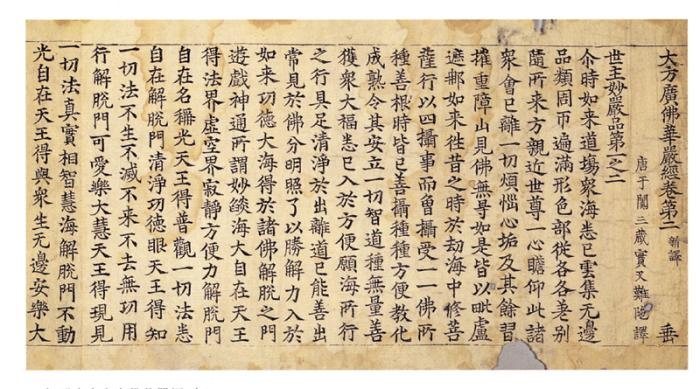 大方廣佛華嚴經卷第二 新譯 垂
唐于闐三藏實叉難陁譯
世主妙嚴品第一之二
尒時如來道場衆海悉已雲集无邊
品類周帀遍滿形色部從各各差別
隨所來方親近世尊一心瞻仰此諸
衆會已離一切煩惱心垢及其餘習
摧重障山見佛無㝵如是皆以毗盧
遮那如來往昔之時於劫海中修菩
薩行以四攝事而曾攝受一一佛所
種善根時皆已善攝種種方便教化
成熟令其安立一切智道種無量善
獲衆大福悉已入於方便願海所行
之行具足清淨於出離道已能善出
常見於佛分明照了以勝解力入於
如來功德大海得於諸佛解脫之門
遊戲神通所謂妙燄海大自在天王
得法界虛空界寂靜方便力解脫門
自在名稱光天王得普觀一切法悉
自在解脫門清淨功德眼天王得知
一切法不生不滅不來不去無功用
行解脫門可愛樂大慧天王得現見
一切法真實相智慧海解脫門不動
光自在天王得與衆生无邊安樂大